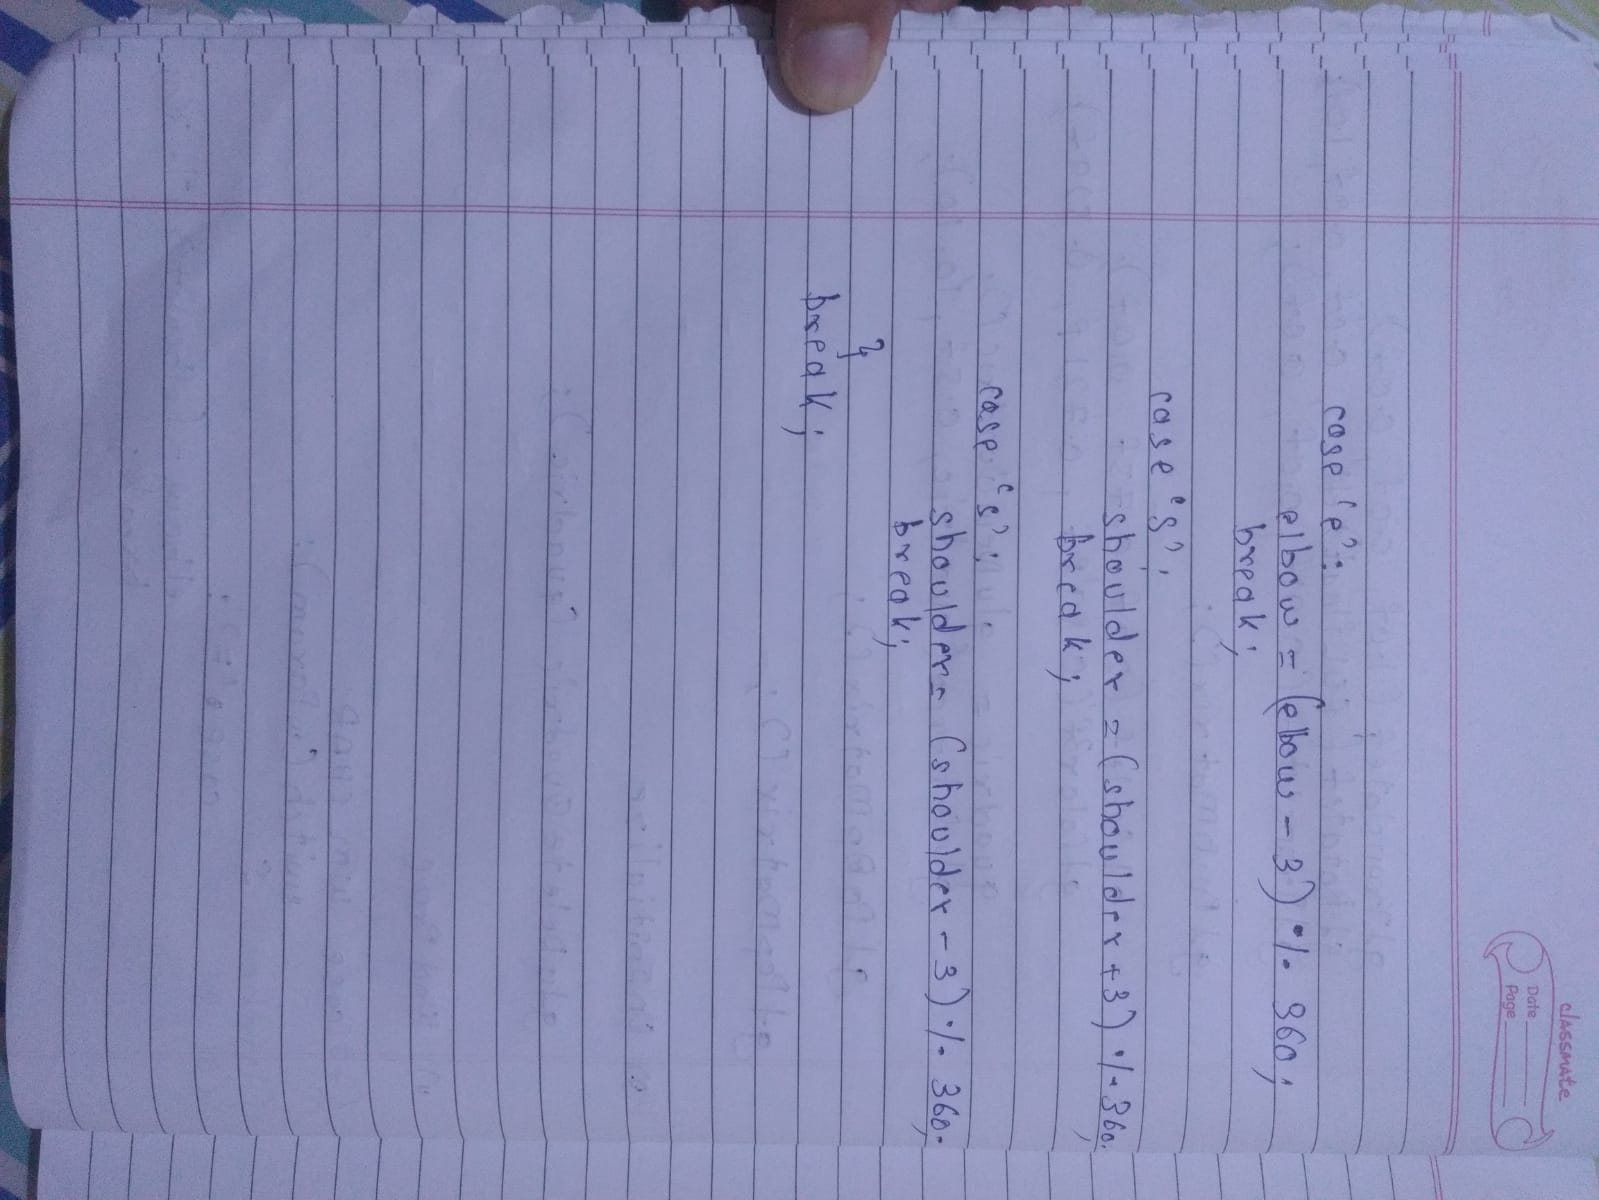 classmate
Date
Page
case 'e':
elbow = (elbow - 3) % 360;
break;
case 'S':
shoulder = (shoulder + 3) % 360;
break;
case 's':
shoulder = (shoulder - 3) % 360;
break;
}
break;